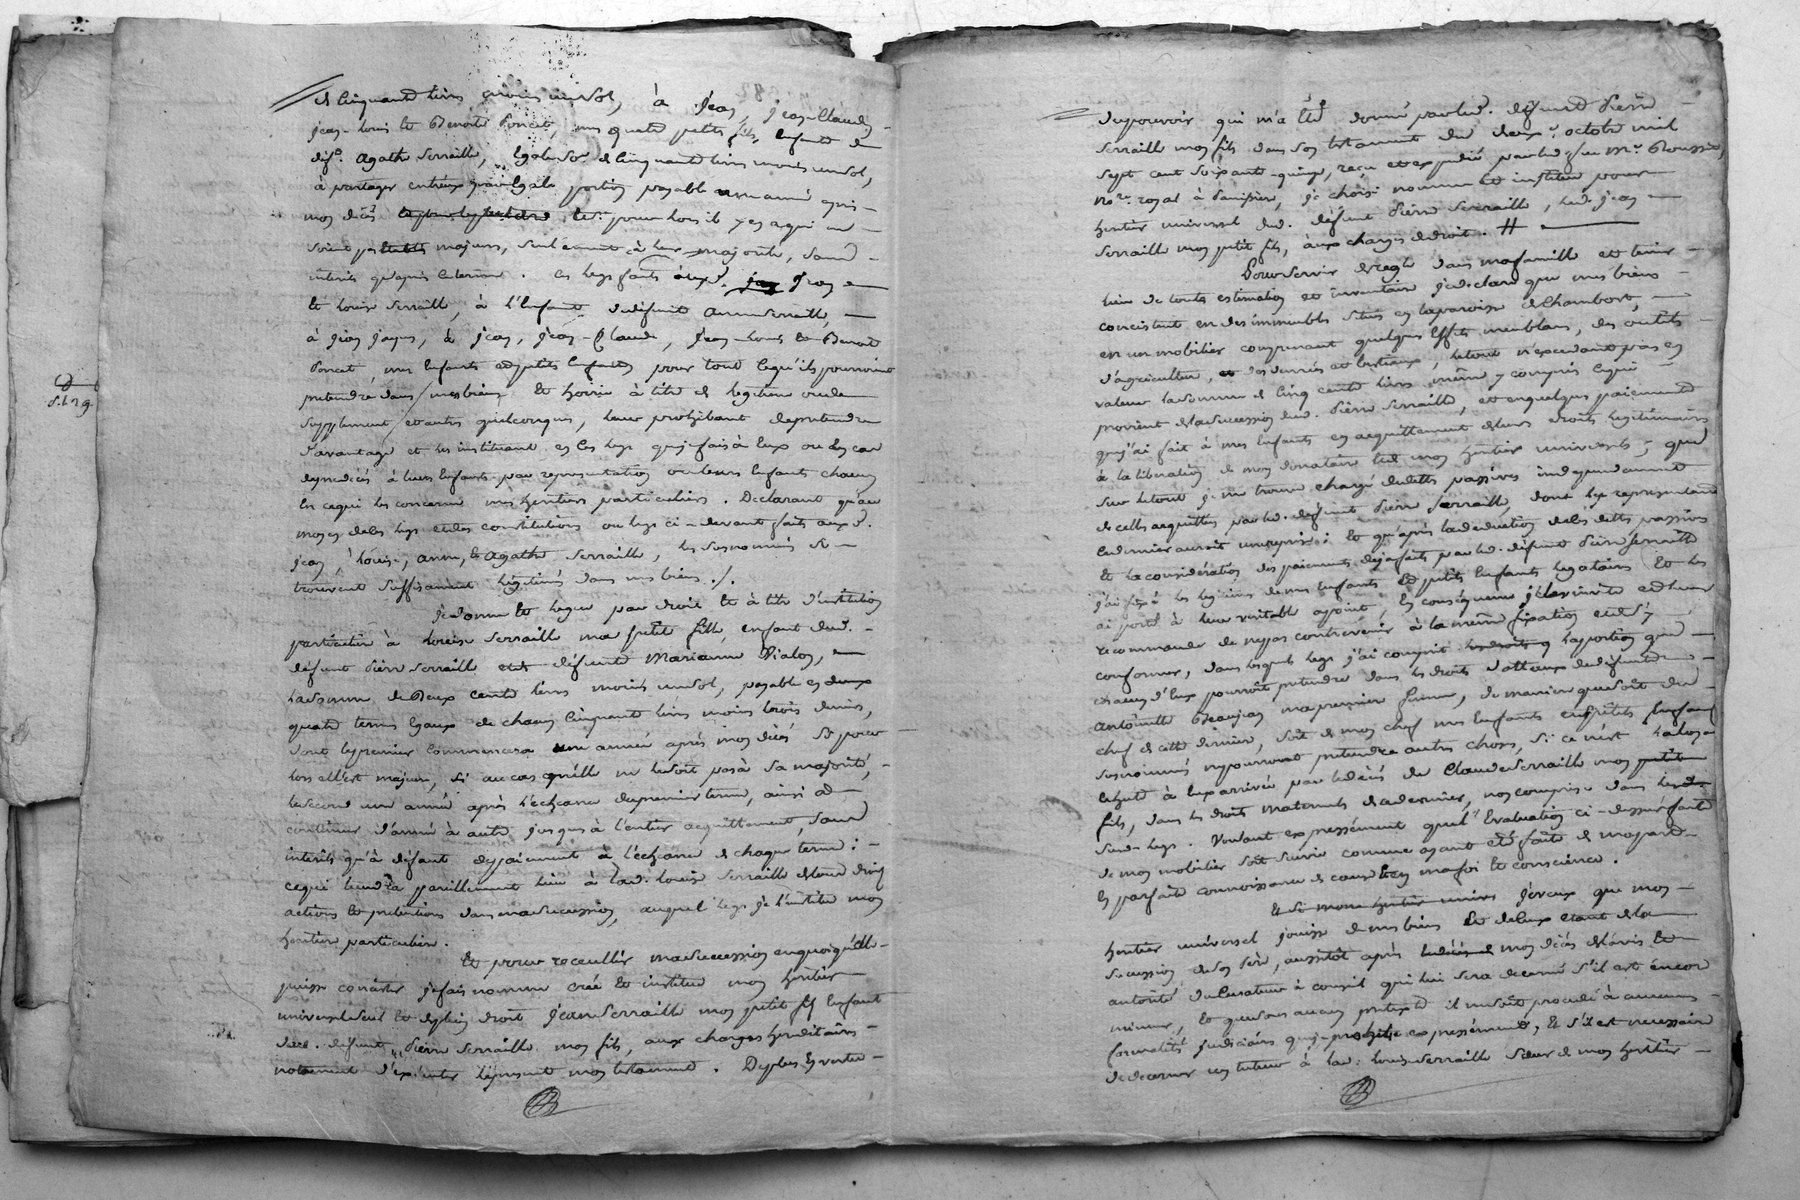 de Cinquante livres moins un sol, à Jean, Jean-Claude,
Jean-Louis et Benoite Poncet, mes quatre petits fils, Enfants de
défte. Agathe Serraille, Egale somme de Cinquante livres moins un sol,
à partager entreux par Egale portion payable une année après
mon décès et pour lors il y en a qui ne
soient pas majeurs, seulement à leur majorité, sans
intérêts qu'après le terme. Ces legs faits auxd. Jean
et Louise Serraille, à l'Enfant de défunte Anne Serraille,
à Jean Jaques, à Jean, Jean-Claude, Jean-Louis et Benoit
Poncet, mes Enfants et petits Enfants pour tout ce qu'ils pourroient
prétendre dans mes biens et hoirie à titre de légitime ou de
supplement et autres quelconques, leur prohibant de prétendre
d'avantage et les instituant en les legs que je fais à Eux ou en cas
de prédécès à leurs Enfants par représentation ou leurs Enfants chacun
en ce qui les concerne mes héritiers particuliers. Déclarant qu'au
moyen de les legs et des constitutions ou legs ci-devant faits auxd.
Jean, Louise, Anne, et Agathe Serraille, les susnommés se
trouvent suffisament légitimés dans mes biens ./.
Je donne et legue par droit et à titre d'institution
particulière à Louise Serraille ma petite fille, enfant dud.
défunt Pierre Serraille et de défunte Marianne Vialon,
la somme de Deux cents livres moins un sol, payable en
quatre termes Egaux de chacun Cinquante livres moins trois deniers,
dont le premier commencera une année après mon décès si pour
lors elle est majeure, si au cas qu'elle ne le soit pas à sa majorité,
le second une année après l'échéance du premier terme, ainsi à
continuer d'année à autre jusques à l'entier acquittement, sans
intérêts qu'à défaut de payement à l'échéance de chaque terme;
ce qui tiendra pareillement lieu à lad. Louise Serraille de tous droits
actions et prétentions dans ma succession, auquel legs je l'institue mon
héritière particulière.
Et pour receuillir ma succession en quoi qu'elle
puisse consister je fais nomme créé et institue mon héritier
universel seul et de plein droit Jean Serraille mon petit fils Enfant
dud. défunt Pierre Serraille mon fils, aux charges héréditaires
notamment d'exécuter le présent mon testament. De plus En vertu
du pouvoir qui m'a été donné par led. défunt Pierre
Serraille mon fils dans son testament du deux octobre mil
sept cent soixante-quinze, reçu et expédié par led. feu Me. Roussin,
nore. royal à Panissieres, je choisi nomme et institue pour
héritier universel dud. défunt Pierre Serraille, led. Jean
Serraille mon petit fils, aux charges de droit. #
Pour servir de regle dans ma famille et tenir
lieu de toute estimation et inventaire je déclare que mes biens
consistent en des immeubles situés en la paroisse de Chambost,
en un mobilier comprenant quelques Effets meublans, des outils
d'agriculture, des denrées et bestiaux, le tout n'excedant pas en
valeur la somme de Cinq cents livres même y compris ce qui
provient de la succession dud. Pierre Serraille, et en quelques paiements
que j'ai fait à mes Enfants en acquittement de leurs droits légitimaires
à la libération de mon donataire et mon héritier universels; que
sur le tout je me trouve chargé de dettes passives indépendamment
de celles acquittées par led. défunt Pierre Serraille, dont les représentants
ce dernier auroit une reprise; Et qu'après la déduction de les dettes passives
et la considération des paiements déjà faits par led. défunt Pierre Serraille
j'ai fixé les légitimes de mes Enfants et petits Enfants légataires et les
ai porté à leur véritable apoint, en conséquence je les invite et leur
recommande de ne pas contrevenir à la même fixation et de s'y
conformer, dans lesquels legs j'ai compris la portion que
chacun d'Eux pourroit prétendre dans les droits dotteaux de défunte
Antoinette Beaujean ma premiere femme, de maniere que soit du
chef de cette derniere, soit de mon chef mes Enfants et petits Enfants
susnommés ne pourront prétendre autres choses, si ce n'est la
échute à Eux arrivée par le décès de Claude Serraille mon
fils, dans les droits maternels de ce dernier, non compris dans
susd. legs. Voulant expressément que l'Evaluation ci-dessus faite
de mon mobilier soit suivie comme ayant été faite de ma part
En parfaite connoissance de cause Et en ma foi et conscience.
Et si mon héritier univer Je veux que mon
héritier universel jouisse de mes biens et de Ceux etant de la
succession de son Pere, aussitôt après mon décès de l'avis et
autorité du Curateur à conseil qui lui sera décerné s'il est encore
mineur, Et que sous aucun prétexte il ne soit procédé à aucunes
formalités judiciaires que je prohibe expressément, Et s'il est nécessaire
de décerner un tuteur à lad. Louise Serraille soeur de mon héritier